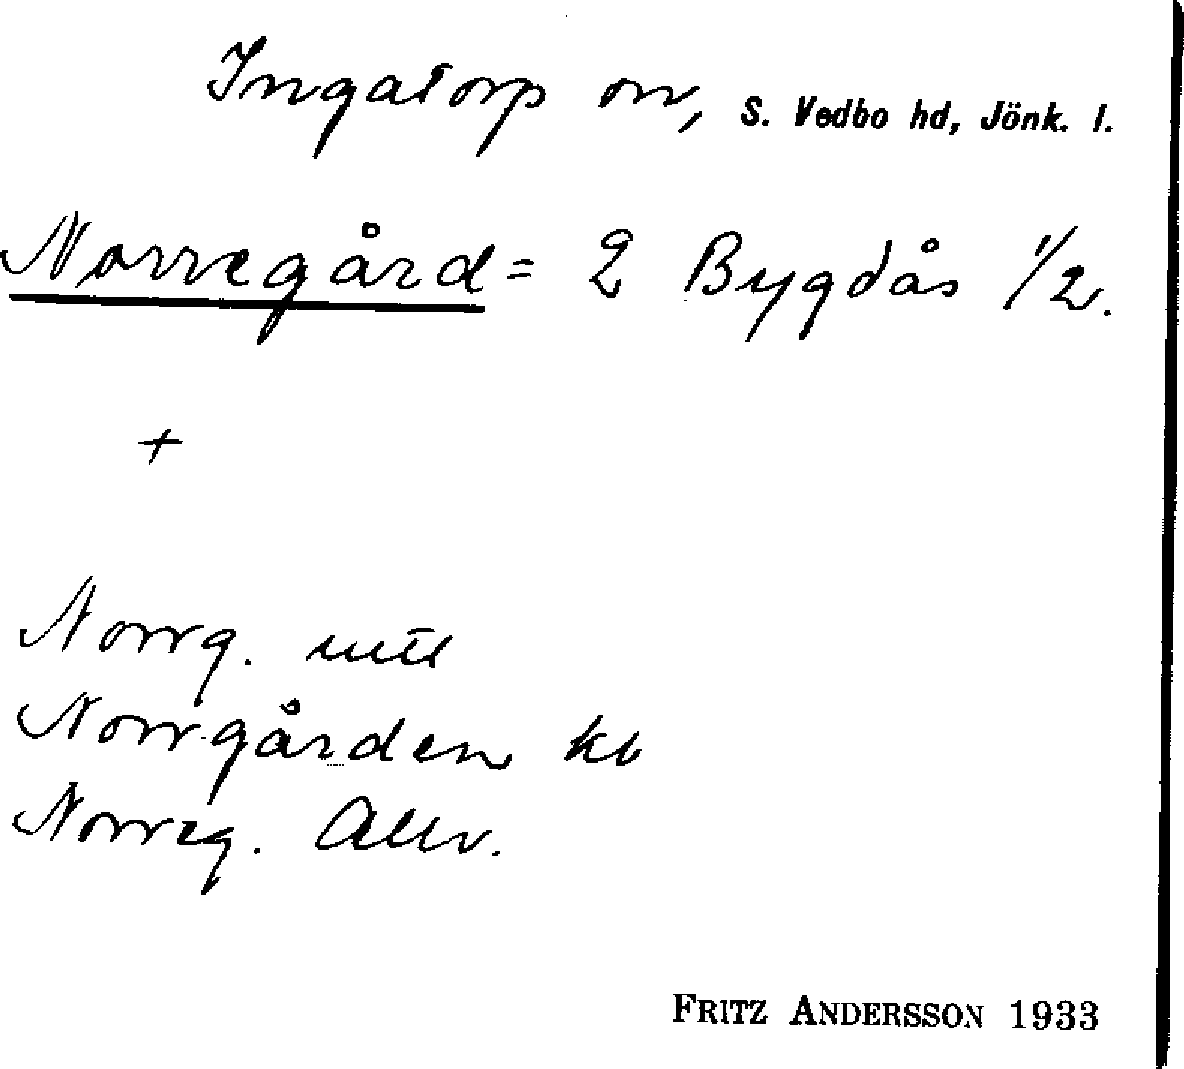 Ingatorp sn, S. Vedbo hd, Jönk. l.
Norregård = 2 Bygdås 1/2.
+
Norrg. utt
Norrgården kb
Norreg. Allv.
FRITZ ANDERSSON 1933